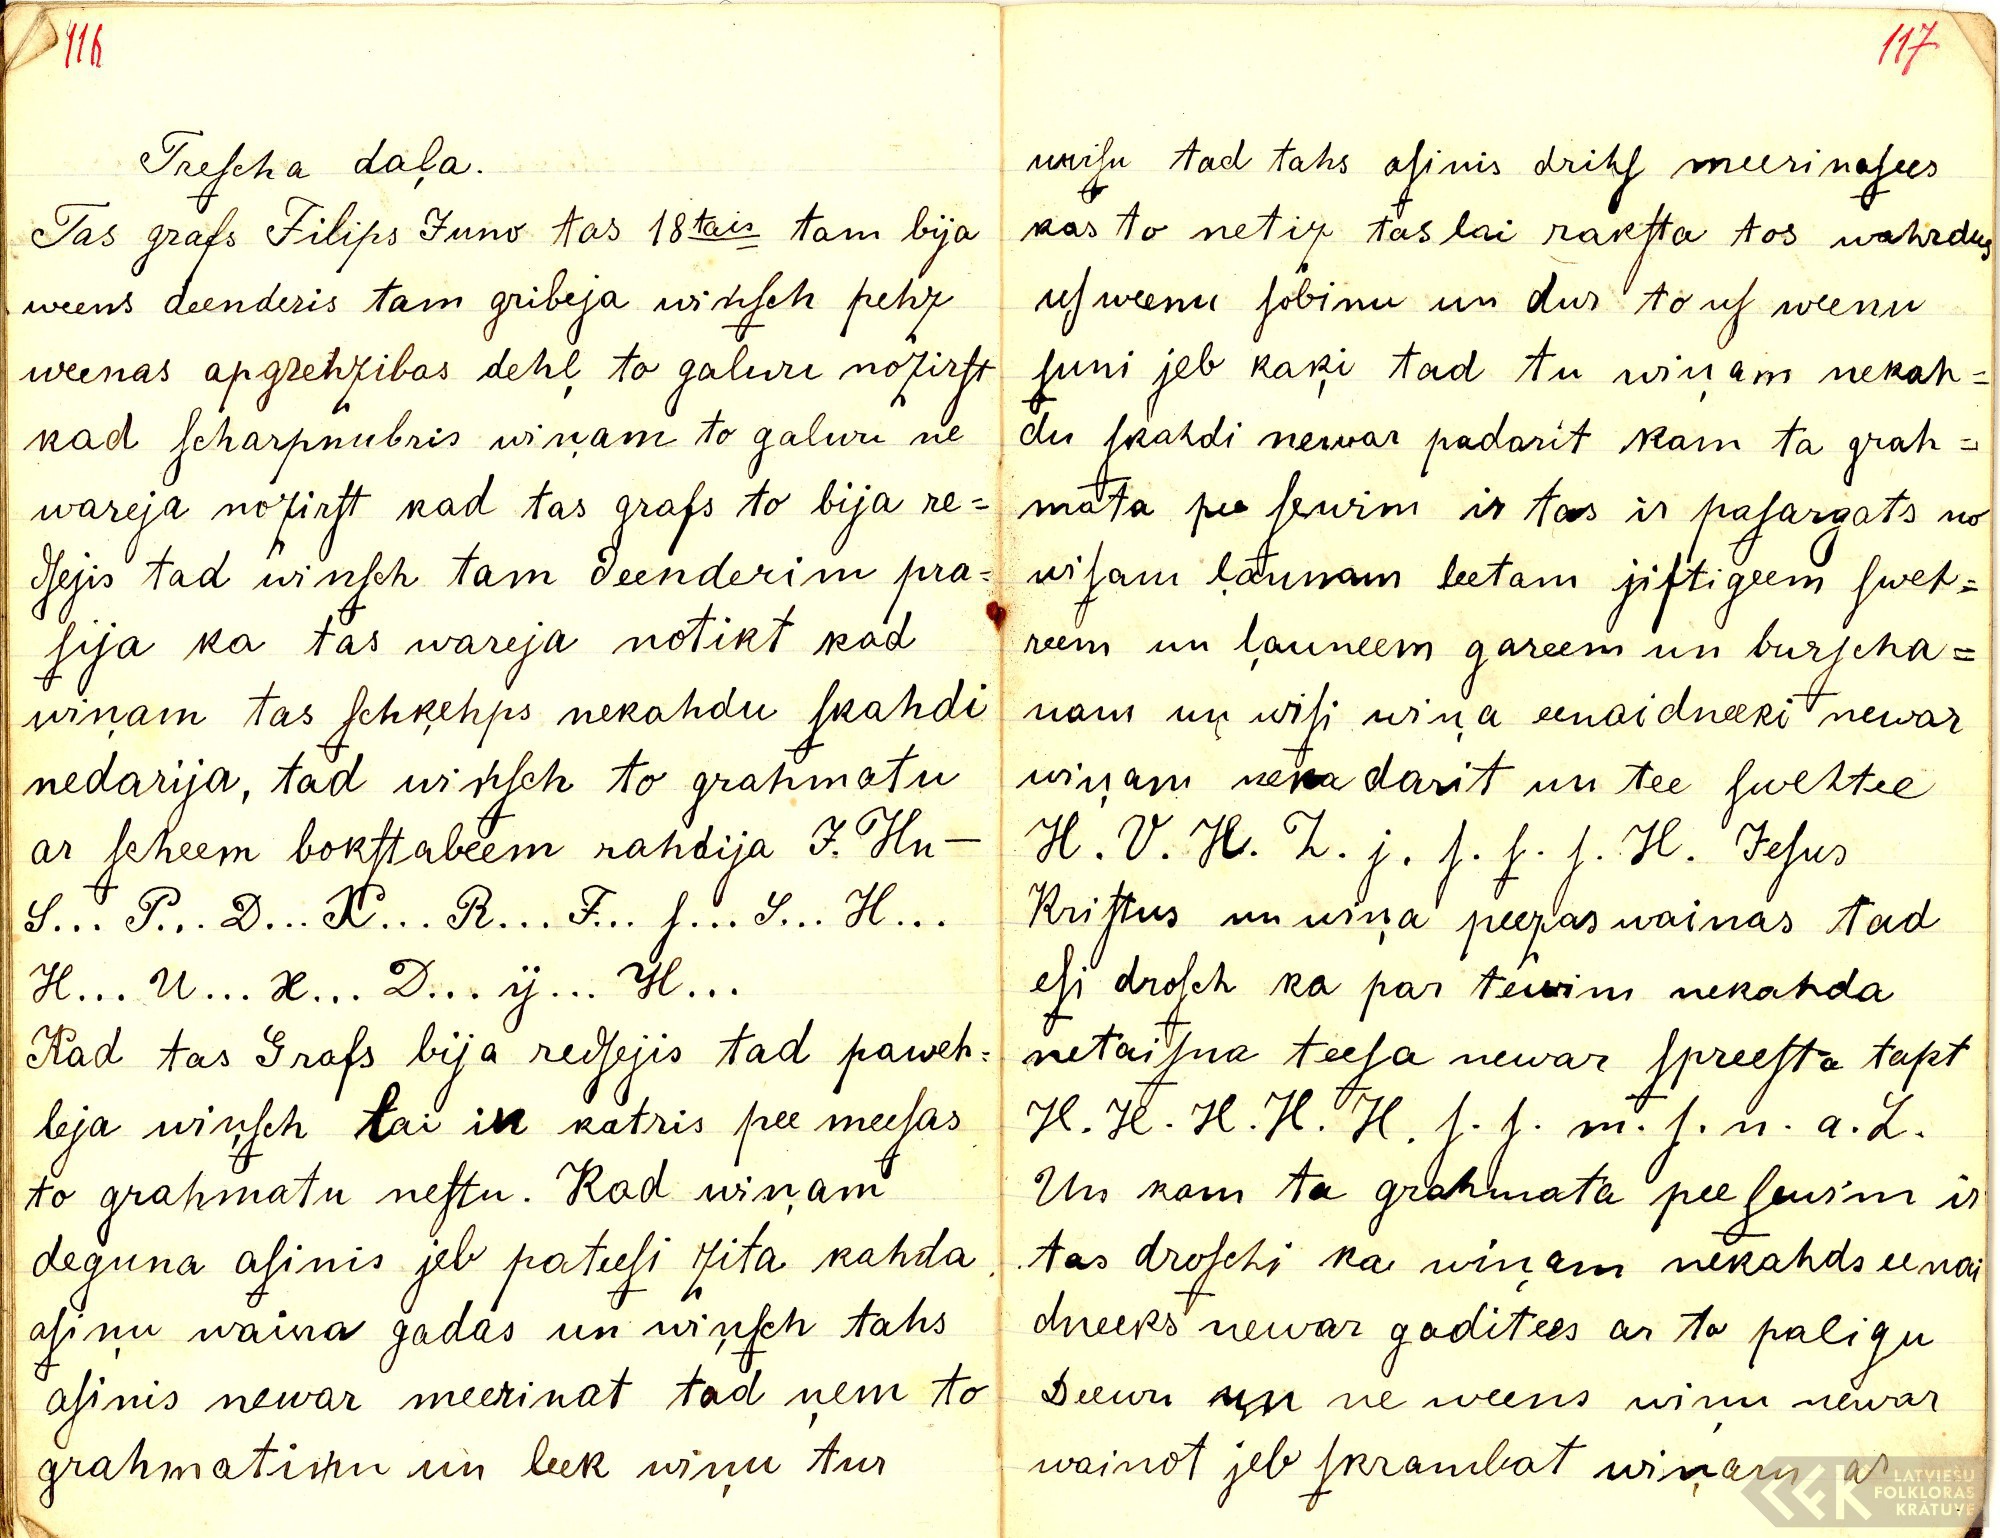 116
Treſcha daļa.
Tas grafs Filips Juno tas 18tais tam bija
weens deenderis tam gribeja winſch pehz
weenas apgrehzibas dehļ to galwu nozirſt
kad ſcharpnubris wiņam to galwu ne
wareja nozirſt kad tas grafs to bija re=
dſejis tad winſch tam deenderim pra=
ſija ka tas wareja notikt kad
wiņam tas ſchķehps nekahdu ſkahdi
nedarija, tad winſch to grahmatu
ar ſcheem bokſtabeem rahdija J. Hu—
S... P... D... K... R... F... ſ... S... H...
H... U... x... D... ÿ... H...
Kad tas Grafs bija redſejis tad paweh=
leja wiņſch lai ik katris pee meeſas
to grahmatu neſtu. Kad wiņam
deguna aſinis jeb pateeſi zita kahda
aſiņu waina gadas un wiņſch tahs
aſinis newar meerinat tad ņem to
grahmatiņu un leek wiņu tur
117
wirſu tad tahs aſinis drihſ meerinaſees
kas to netiz tas lai rakſta tos wahrdus
uſ weenu ſobinu un dur to uſ weenu
ſuni jeb kaķi tad tu wiņam nekah=
du ſkahdi newar padarit kam ta grah=
mata pee ſewim ir tas ir paſargats no
wiſam ļaunam leetam jiftigeem ſweh=
reem un ļauneem gareem un burſcha=
nam un wiſi wiņa eenaidneeki newar
wiņam neka darit un tee ſwehtee
H. V. H. Z. j. ſ. ſ. ſ. H. Jeſus
Kriſtus un wiņa peezas wainas tad
eſi droſch ka par tewim nekahda
netaiſna teeſa newar ſpreeſta tapt
H. H. H. H. H. ſ. ſ. m. ſ. n. a. Z.
Un kam ta grahmata pee ſewim ir
tas droſchi ka wiņam nekahds eenai
dneeks newar gaditees ar to paligu
Deewu un ne weens wiņu newar
wainot jeb ſkrambat wiņam ar
LATVIEŠU
FOLKLORAS
KRĀTUVE